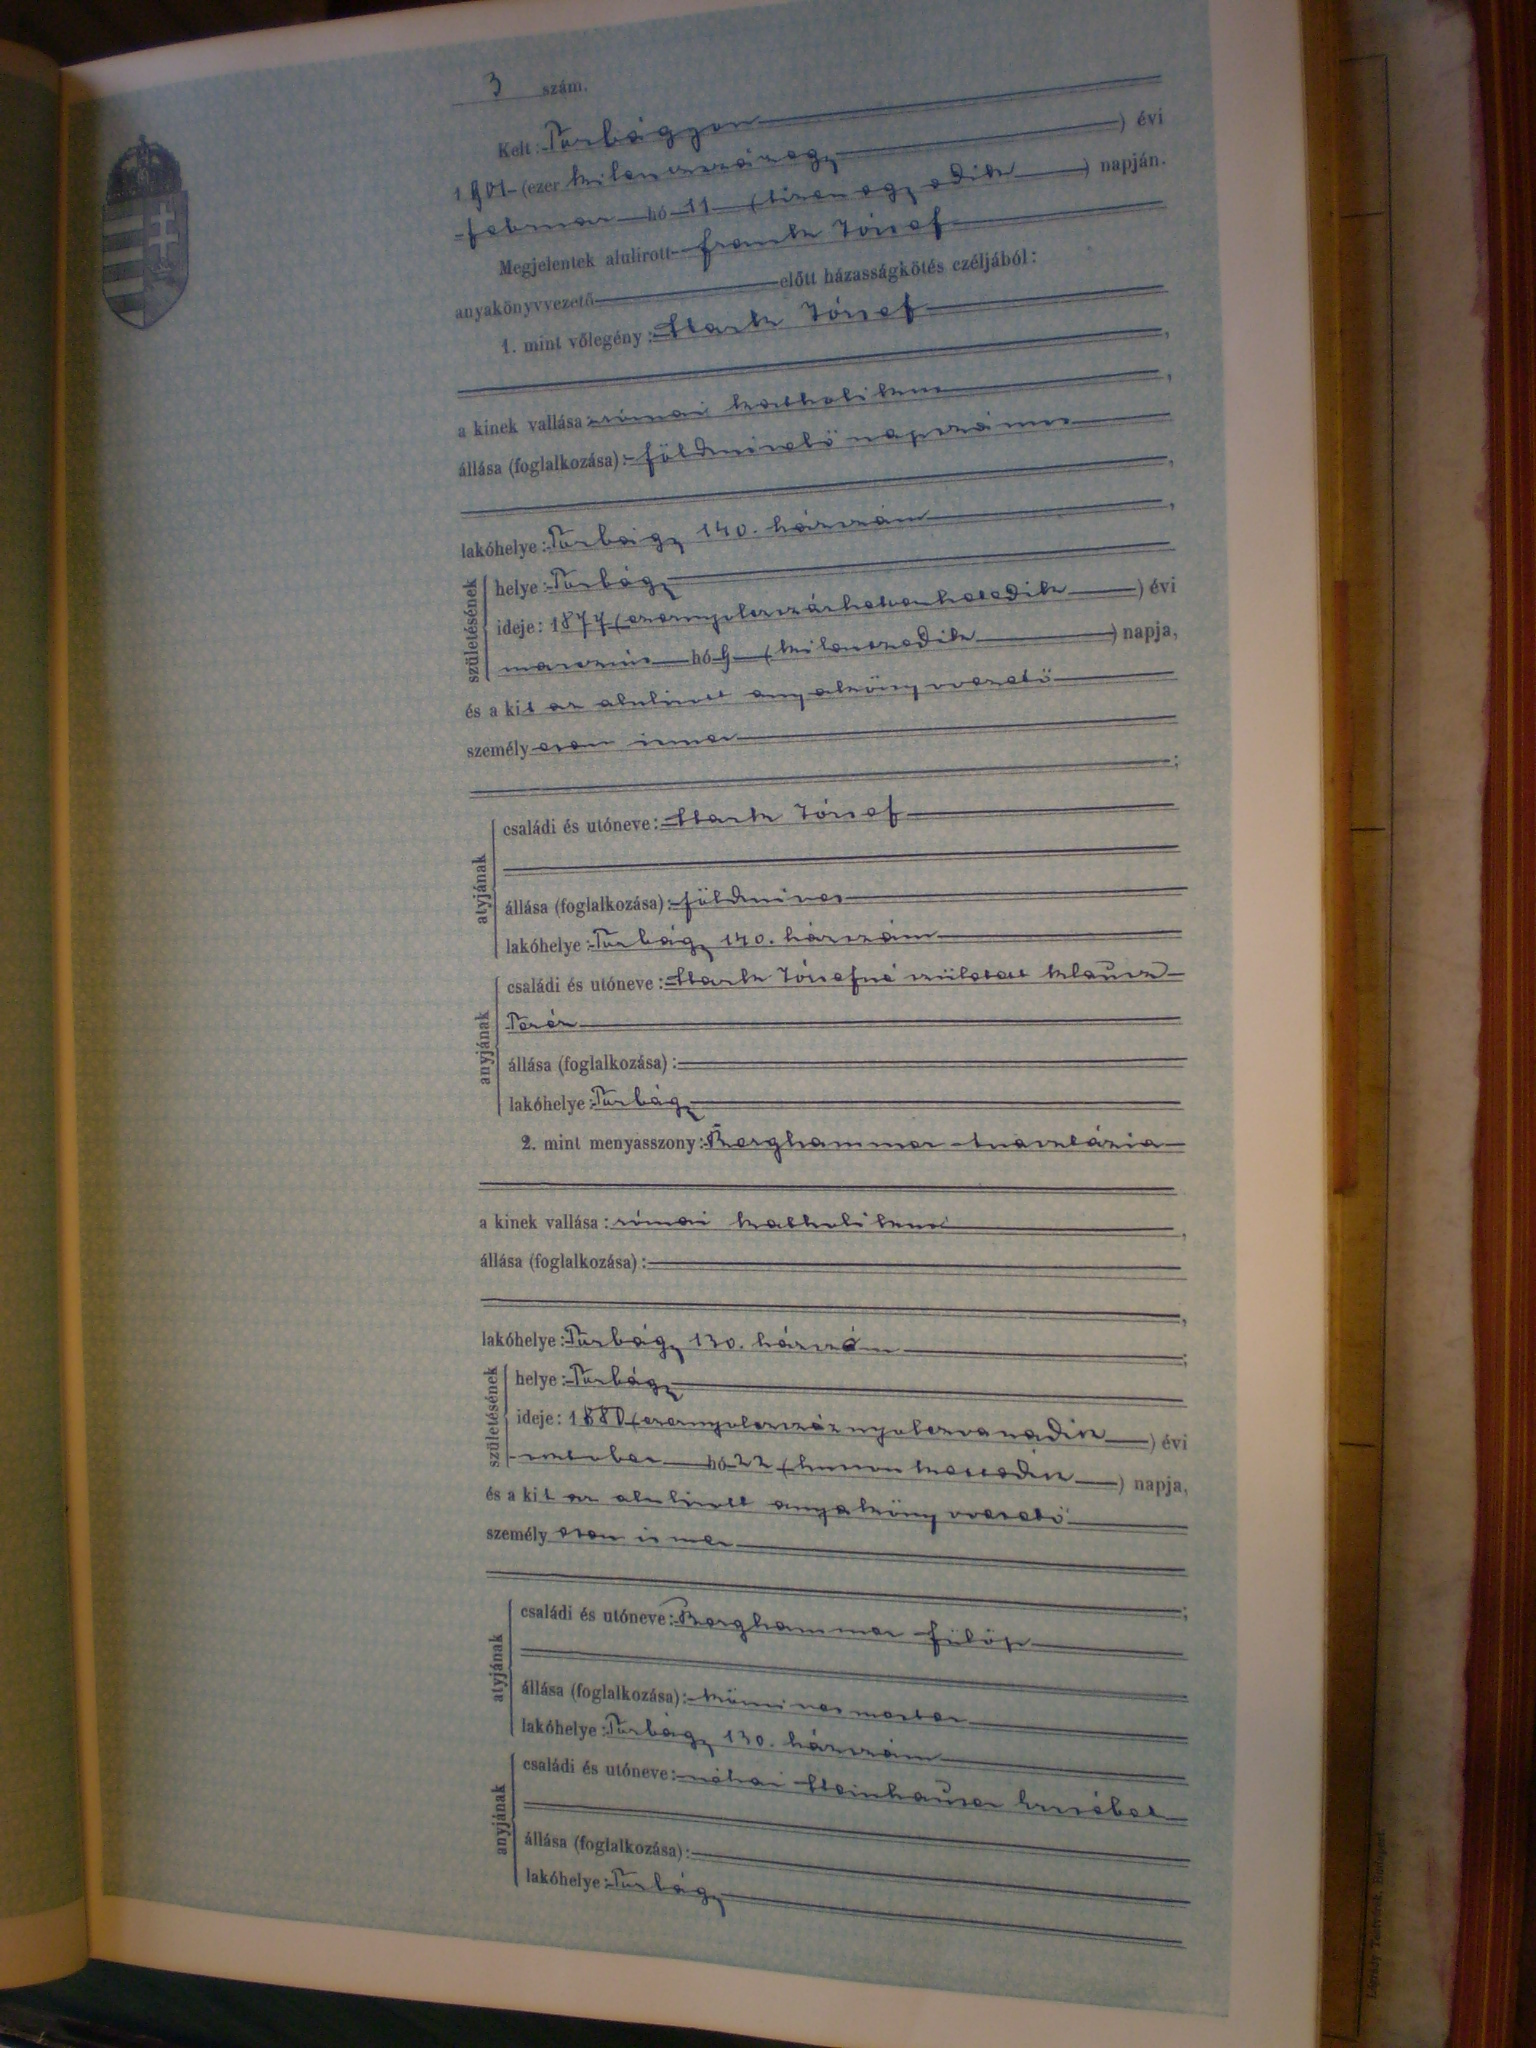 3 szám.
Kelt: Törbágyon
1901 (ezer kilenczszázegy) évi
februar hó 11 (tizenegyedik) napján.
Megjelentek alulirott Frank József
anyakönyvvezető előtt házasságkötés czéljából:
1. mint vőlegény: Stark József
a kinek vallása: római katholikus
állása (foglalkozása): földmivelő napszámos
lakóhelye: Törbágy 140. házszám
születésének
helye: Törbágy
ideje: 1877 (ezernyolczszázhetvenhetedik) évi
marczius hó 9 (kilenczedik) napja,
és a kit az alulirott anyakönyvvezető
személyesen ismer
;
atyjának
családi és utóneve: Stark József
állása (foglalkozása): földmives
lakóhelye: Törbágy 140. házszám
anyjának
családi és utóneve: Stark Józsefné született Klausz
Teréz
állása (foglalkozása):
lakóhelye: Törbágy
2. mint menyasszony: Berghammer Anasztázia
a kinek vallása: római katholikus
állása (foglalkozása):
lakóhelye: Törbágy 130. házszám
születésének
helye: Törbágy
ideje: 1880 (ezernyolczszáznyolczvanadik) évi
október hó 22 (huszonkettedik) napja,
és a kit az alulirott anyakönyvvezető
személyesen ismer
;
atyjának
családi és utóneve: Berghammer Fülöp
állása (foglalkozása): kőmives mester
lakóhelye: Törbágy 130. házszám
anyjának
családi és utóneve: néhai Steinhauser Erzsébet
állása (foglalkozása):
lakóhelye: Törbágy
Légrády Testvérek, Budapest